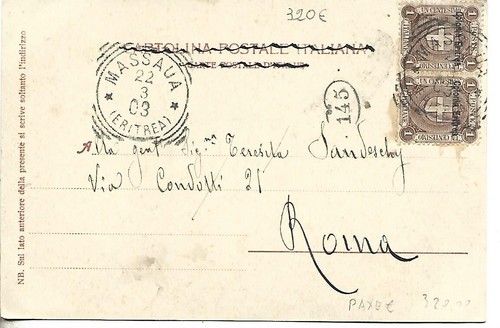 320€
CARTOLINA POSTALE ITALIANA
MASSAUA
22
3
03
(ERITREA)
145
1 UN CENTESIMO 1
1 UN CENTESIMO 1
Alla gent. Sig.na Teresita
Via Condotti 21
Roma
NB. Sul lato anteriore della presente si scrive soltanto l'indirizzo
PAXE€